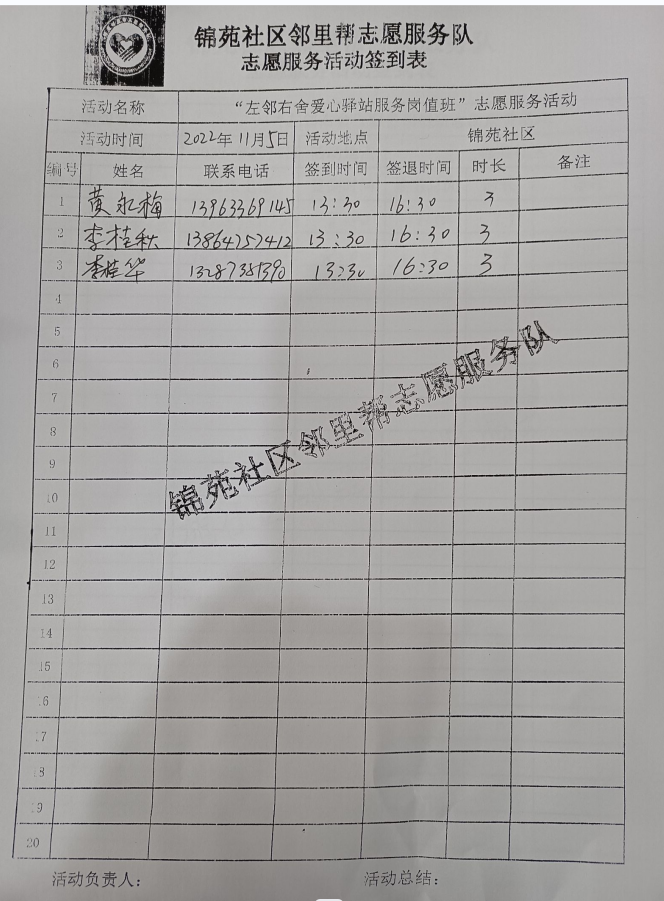 锦苑社区邻里帮志愿服务队
志愿服务活动签到表
活动名称 “左邻右舍爱心驿站服务岗值班”志愿服务活动
活动时间 2022年11月5日 活动地点 锦苑社区
编号 姓名 联系电话 签到时间 签退时间 时长 备注
1 黄永梅 13963369145 13:30 16:30 3
2 李桂秋 13864757412 13:30 16:30 3
3 李桂华 13:30 16:30 3
4
5
6
7
8
9
10
11
12
13
14
15
16
17
18
19
20
锦苑社区邻里帮志愿服务队
活动负责人: 活动总结: